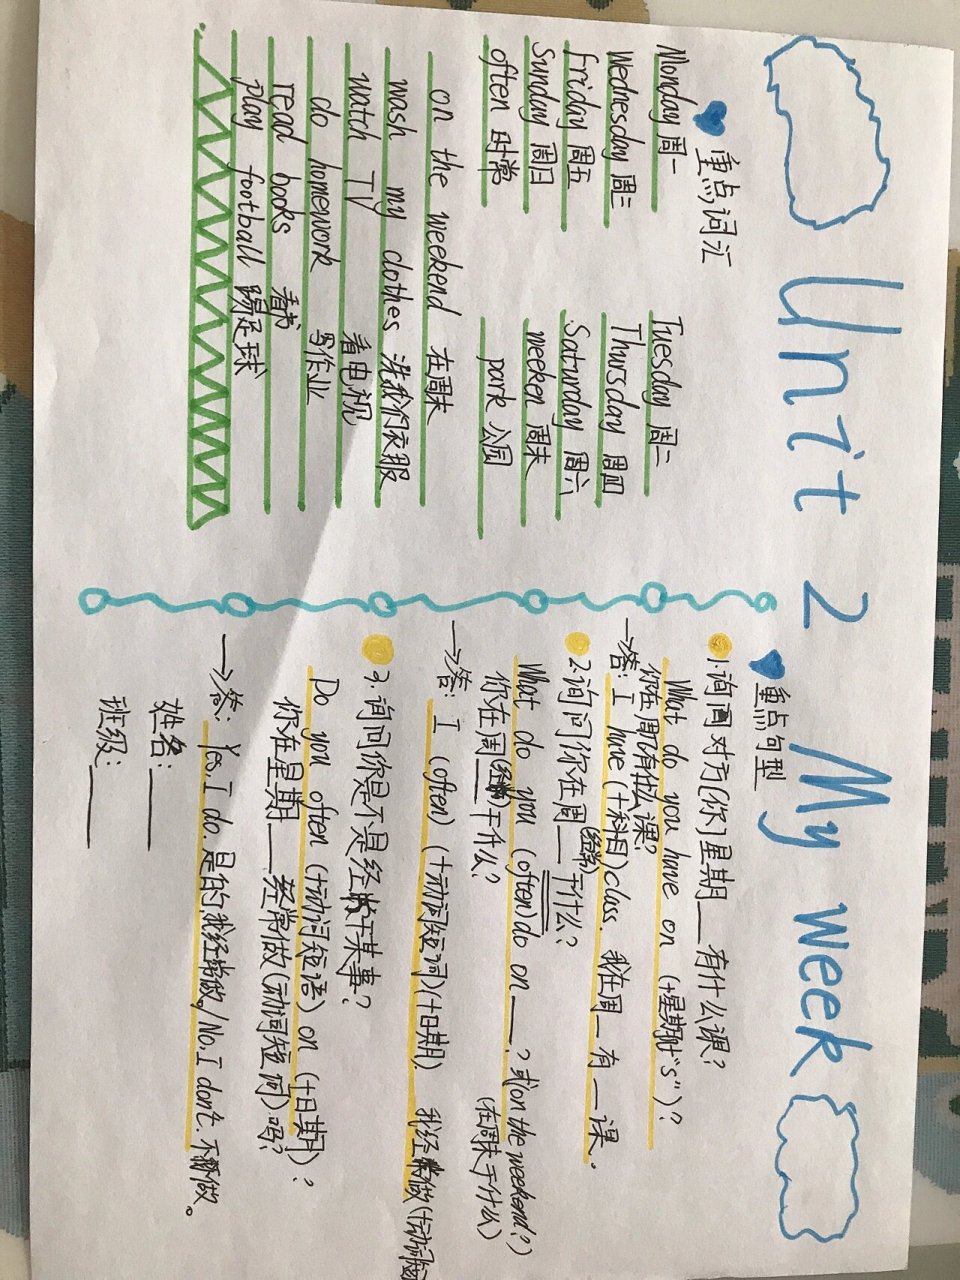 Unit 2 My week
重点词汇
Monday 周一 Tuesday 周二
Wednesday 周三 Thursday 周四
friday 周五 Saturday 周六
Sunday 周日 weeken 周末
often 时常 park 公园
on the weekend 在周末
wash my clothes 洗我们衣服
watch TV 看电视
do homework 写作业
read books 看书
play football 踢足球
重点句型
1.询问对方(你)星期__有什么课?
What do you have on (+星期时"s")?
你在周几有什么课?
→答: I have (+科目)class. 我在周一有一课.
2.询问你在周__(经常)干什么?
What do you (often)do on__? 或(on the weekend?)
你在周__(经常)干什么? (在周末干什么)
→答: I (often) (+动词短词)(+日期). 我经常做(+动词短
3.询问你是不是经常干某事?
Do you often (+动词短语) on (+日期)?
你在星期__经常做(动词短词)吗?
→答: Yes,I do. 是的,我经常做。/No,I don't. 不做。
姓名:____
班级:____